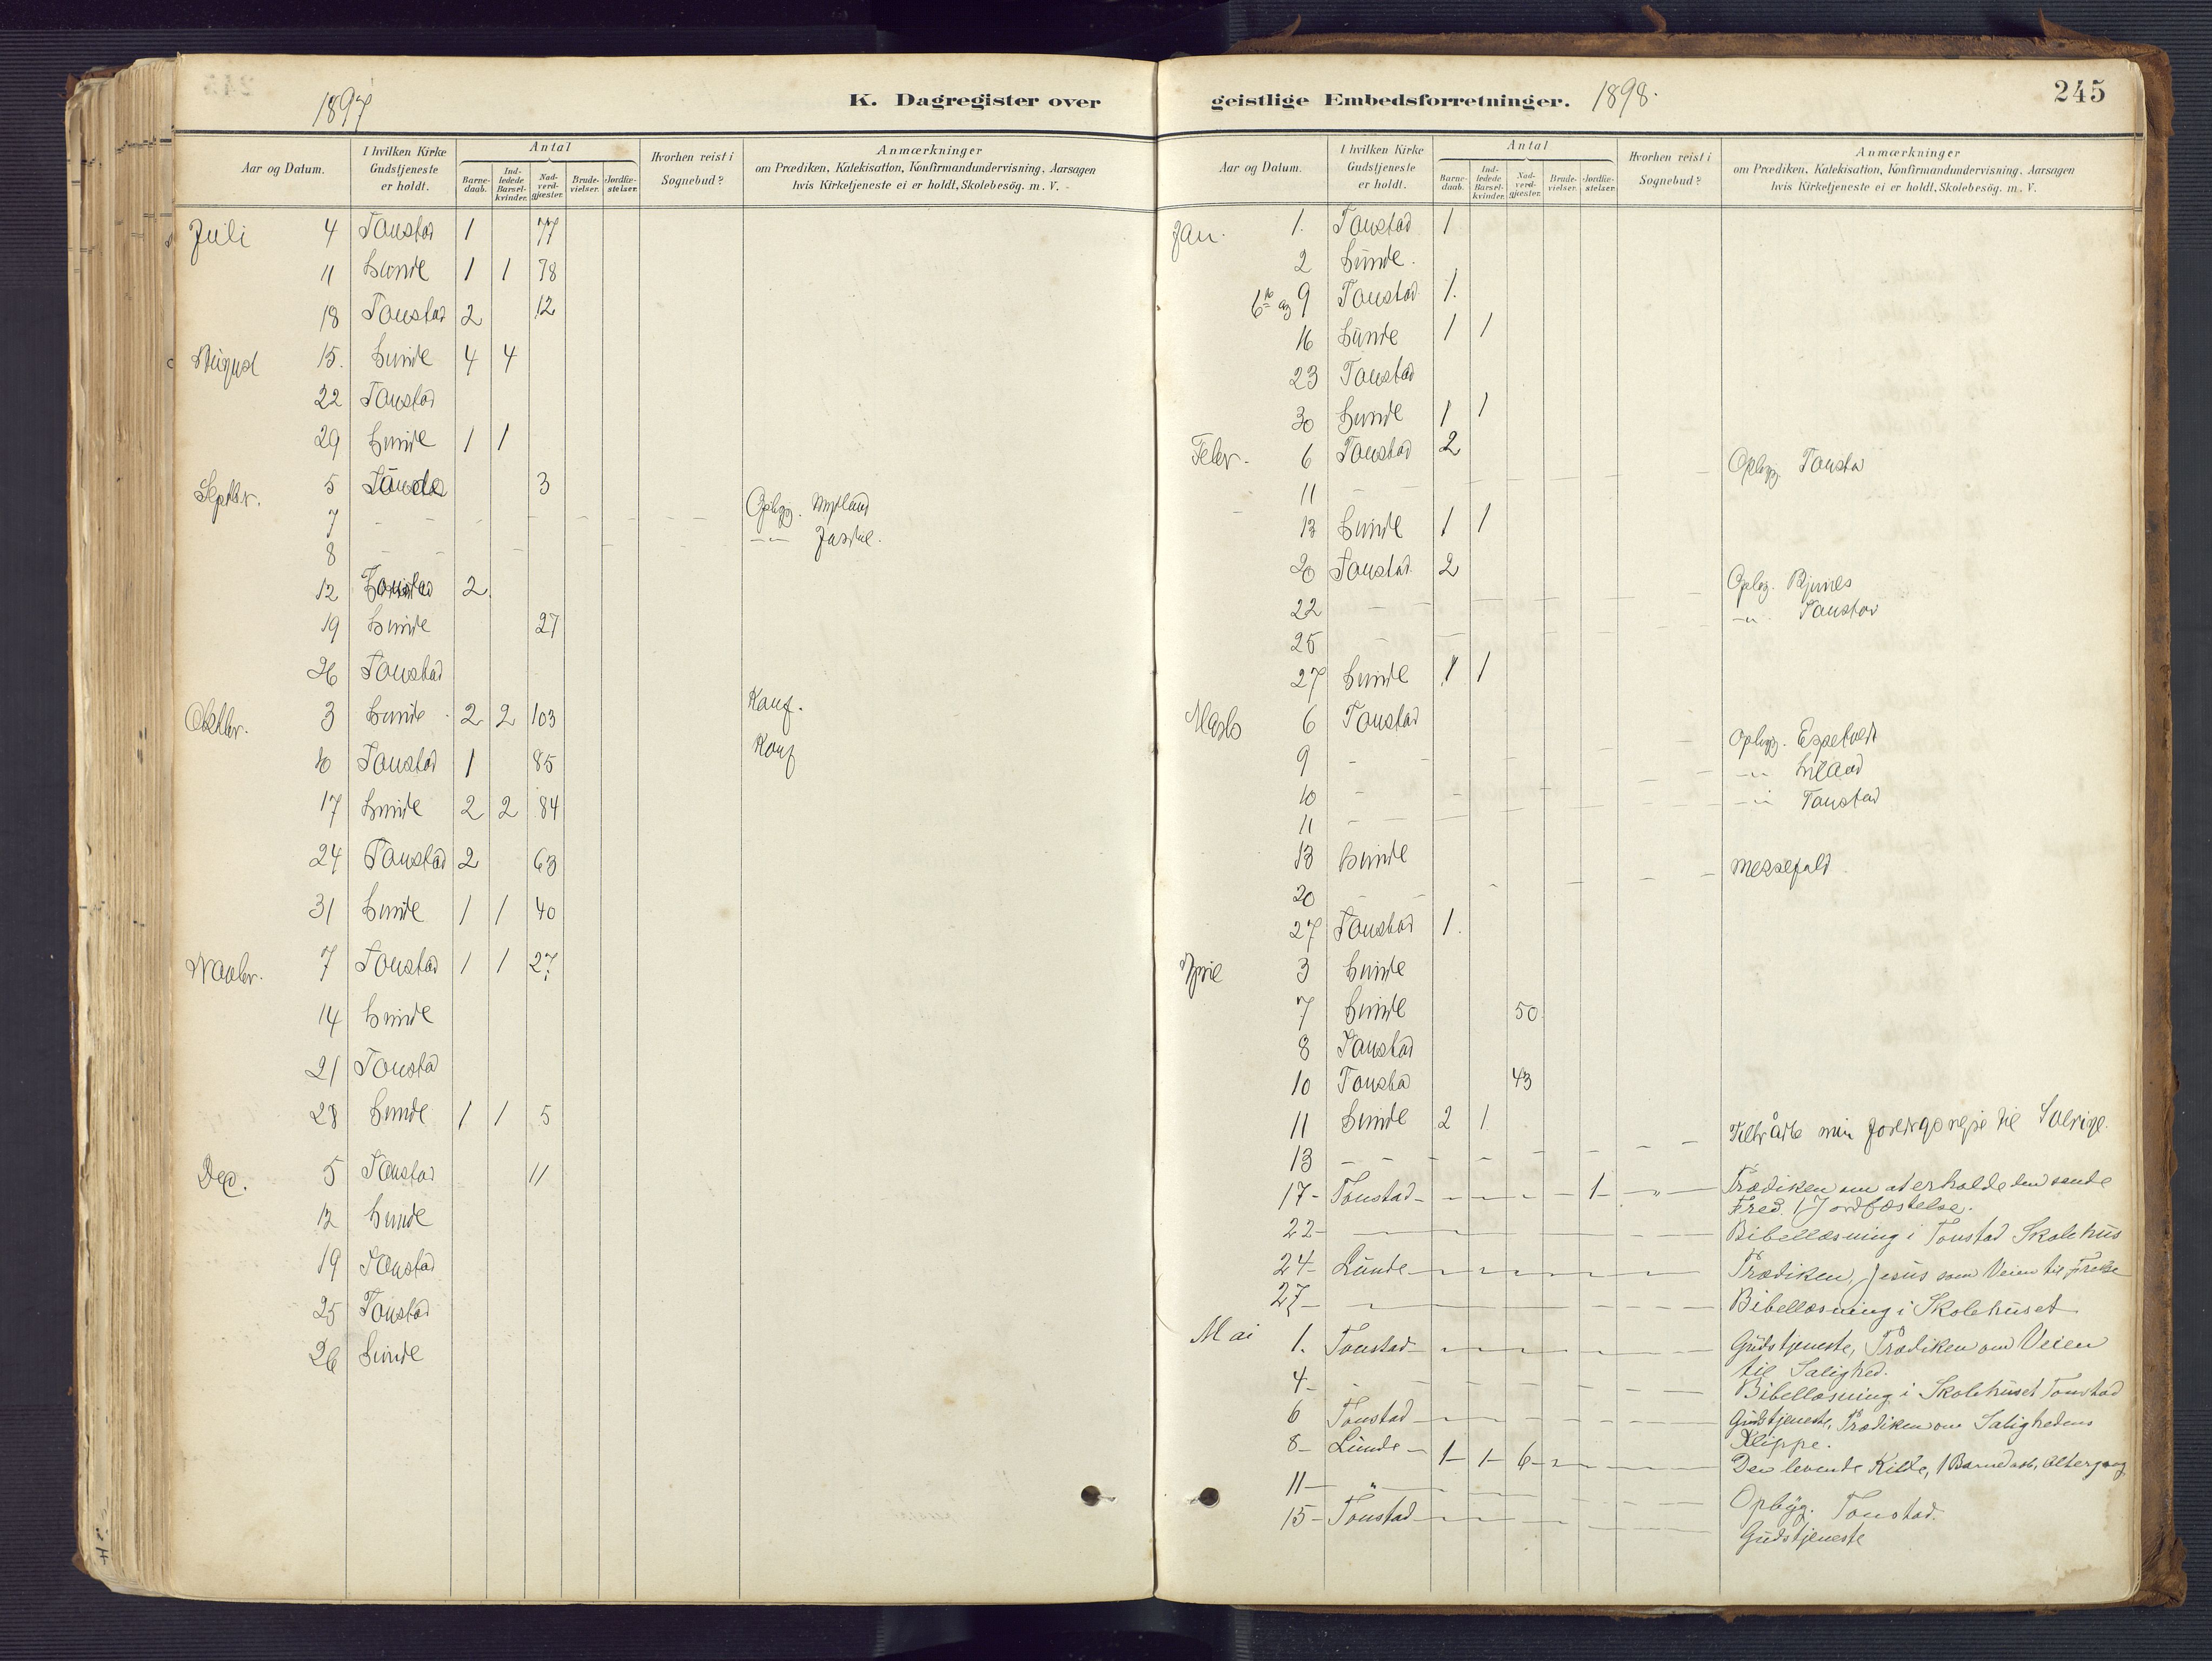 1897
K. Dagregister over
Aar og Datum. I hvilken Kirke Gudstjeneste er holdt. Antal Barnedaab. Indledede Barselkvinder. Nadverdgjæster. Brudevielser. Jordfæstelser. Hvorhen reist i Sognebud? Anmærkninger om Prædiken, Katekisation, Konfirmandundervisning, Aarsagen hvis Kirketjeneste ei er holdt, Skolebesög. m. V.
Juli 4 Tonstad 1 77
11 Lunde 1 1 78
18 Tonstad 2 12
August 15. Lunde 4 4
22 Tonstad
29 Lunde 1 1
Septbr. 5 3
7 - - - - - - - - Opbygg.
8 - - - - - -"-
12 Tonstad 2
19 Lunde 27
26 Tonstad
Oktbr. 3 Lunde 2 2 103 Konf.
10 Tonstad 1 85 Konf
17 Lunde 2 2 84
24 Tonstad 2 63
31 Lunde 1 1 40
Novbr. 7 Tonstad 1 1 27
14 Lunde
21 Tonstad
28 Lunde 1 1 5
Dec. 5 Tonstad 11
12 Lunde
19 Tonstad
25 Tonstad
26 Lunde
geistlige Embedsforretninger. 1898. 245
Aar og Datum. I hvilken Kirke Gudstjeneste er holdt. Antal Barnedaab. Indledede Barselkvinder. Nadverdgjæster. Brudevielser. Jordfæstelser. Hvorhen reist i Sognebud? Anmærkninger om Prædiken, Katekisation, Konfirmandundervisning, Aarsagen hvis Kirketjeneste ei er holdt, Skolebesög. m. V.
Jan. 1. Tonstad 1
2 Lunde.
9 Tonstad 1.
16 Lunde 1 1
23 Tonstad
30 Lunde 1 1
Febr. 6 Tonstad 2
11 - - - - - - Opbyg. Tonstad
13 Lunde 1 1
20 Tonstad 2
22 - - - - - - Opbyg.
25 - - - - - -"- Tonstad
27 Lunde 1 1
Marts 6 Tonstad
9 - - - - - - Opbygg.
10 - - - - - -"-
11 - - - - - -"- Tonstad
13 Lunde
20 - - - - - Messefald
27 Tonstad 1.
April 3 Lunde
7 Lunde 50
8 Tonstad
10 Tonstad 43
11 Lunde 2 1
13 - - - - - - Tiltrådte min til Sverige.
17- Tonstad - - - - 1 - " - Prædiken om at erholde den sande
Fred. 1 Jordfæstelse.
22- - - - - Bibellæsning i Tonstad Skolehus
24- Lunde - - - - - Prædiken, Jesus som Veien til Frelse
27- - - - - Bibellæsning i Skolehuset
Mai 1. Tonstad - - - - - Gudstjeneste, Prædiken om Veien
til Salighed.
4- - - - - - Bibellæsning i Skolehuset Tonstad
6 Tonstad - - - - - Gudstjeneste, Prædiken om Salighedens
Klippe.
8- Lunde - 1- 1- 6- - - Den levende Kilde, 1 Barnedaab, Altergang
11- " - - - - Opbyg. Tonstad.
15- Tonstad - - - - - Gudstjeneste